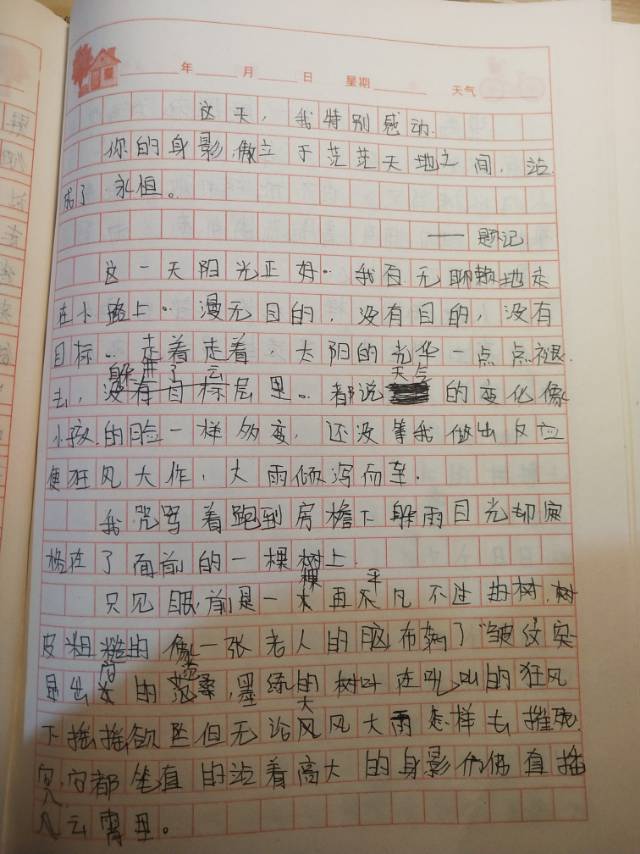 年 月 日 星期 天气
这天，我特别感动.
你的身影，傲立于茫茫天地之间，站
成了永恒。
——题记
这一天阳光正好..我百无聊赖地走
在小路上..漫无目的，没有目的，没有
目标..走着走着，太阳的光华一点点褪
躲进了云 天气
去，层里..都说的变化像
小孩的脸一样多变，还没等我做出反应
便狂风大作，大雨倾泻而至.
我咒骂着跑到房檐下躲雨目光却定
格在了面前的一棵树上.
棵 平
只见眼前是一再不凡不过的树.树
皮粗糙的像一张老人的脑布满了皱纹实
显出的沧桑,墨绿的树叶在吼叫的狂风
大
下摇摇欲坠但无论风风大雨怎样去摧残
它都笔直的站着高大的身影仍直插
入云霄里。